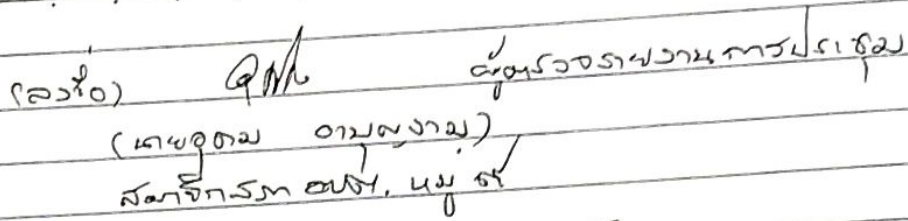 (ลงชื่อ) ผู้ตรวจรายงานการประชุม
(นายอุดม อาบุญงาม)
สมาชิกสภา อบต. หมู่ ๙